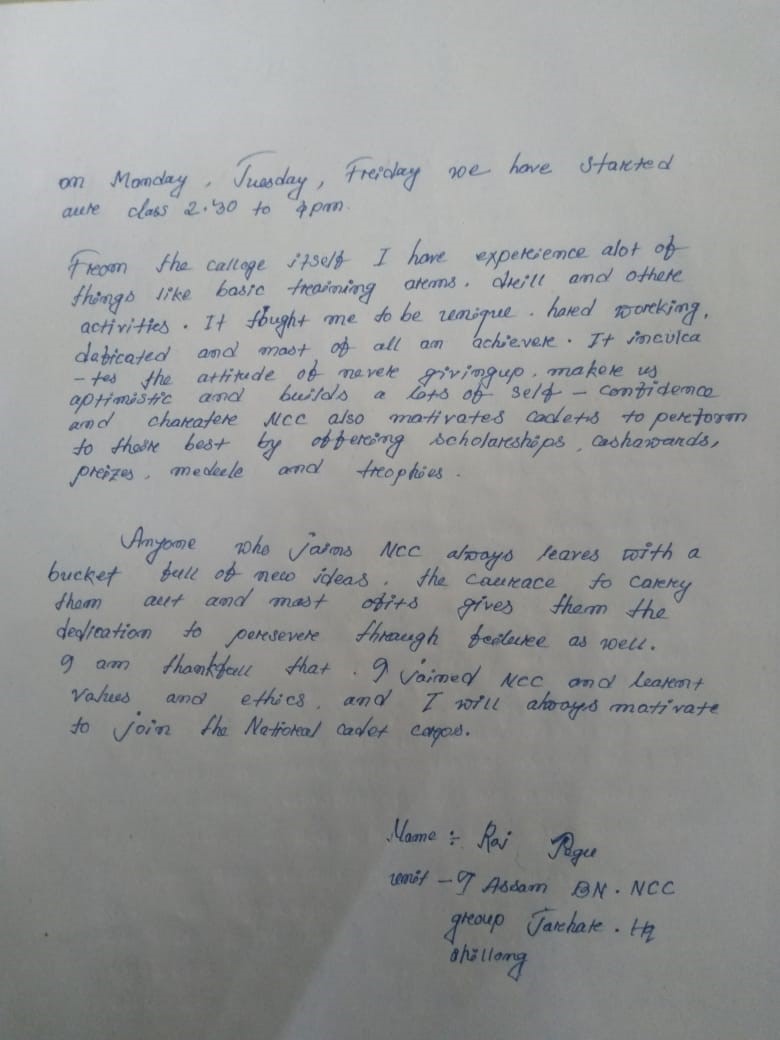 on Monday, Tuesday, Freiday we have started
aure class 2.30 to 4pm.
Freom the callege itself I have expereience alot of
things like basic treaining arems. dreill and othere
activities. It tought me to be uenique. hared woreking,
dabicated and mast of all an achievere. It inculca
-tes the attitude of nevere givingup. makere us
aptimistic and builds a lots of self - confidence
and chareatere NCC also mativates cadets to pereform
to theire best by offereing scholareships, cashawards,
preizes, medele and treophies.
Anyone who jains NCC always leaves with a
bucket full of new ideas. the caurace to carery
them aut and mast ofits gives them the
dedication to peresevere through feeluree as well.
I am thankfull that. I jained NCC and learent
values and ethics, and I will always mativate
to join the National cadet corps.
Name :- Raj Pegu
uenit - 7 Assam BN. NCC
greoup Jarehate. Hq
shillong